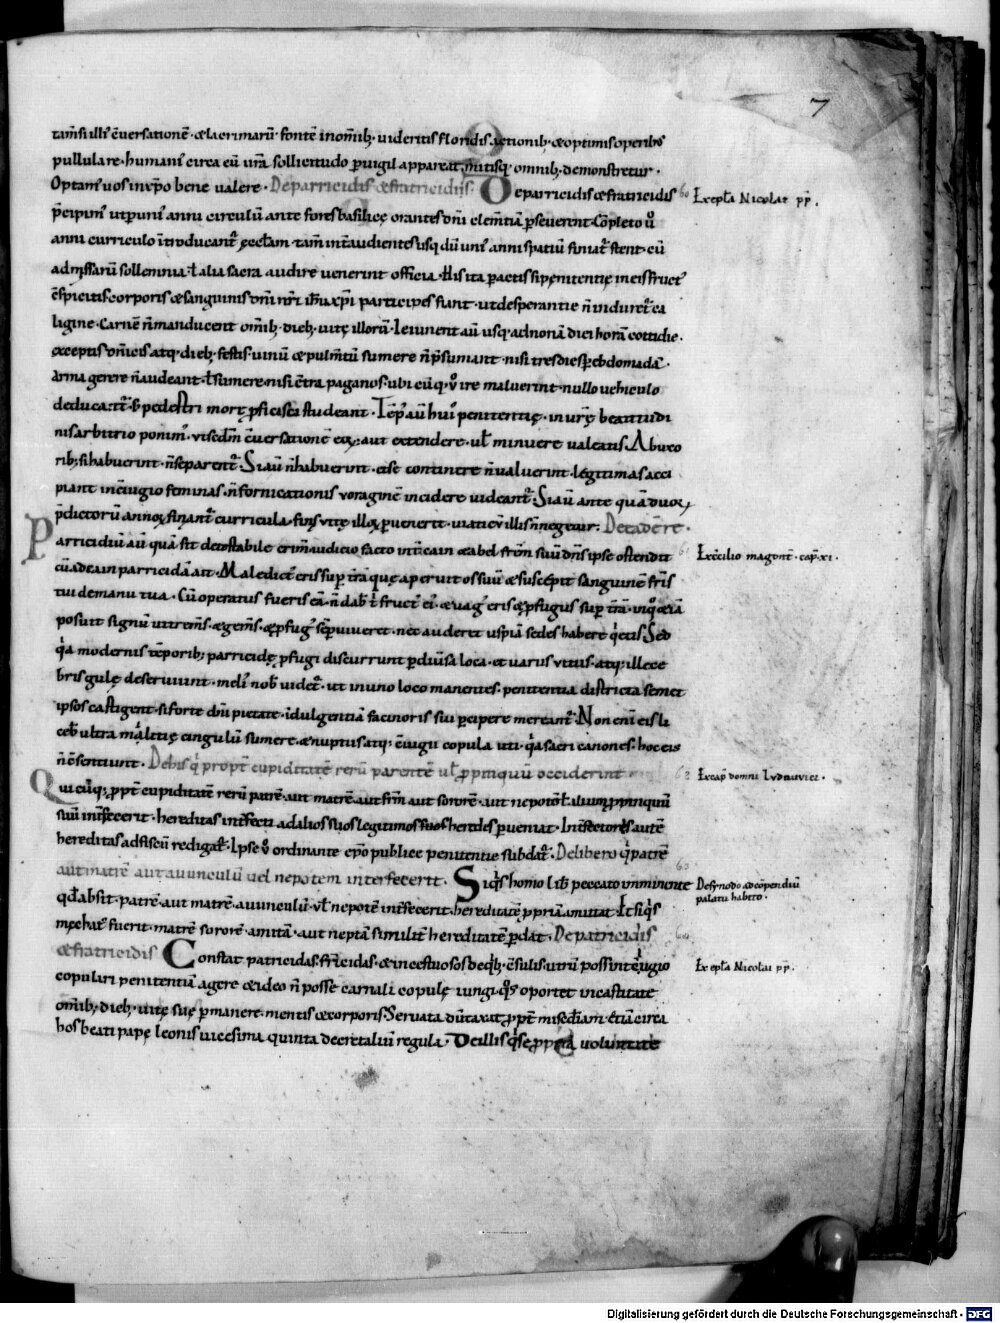 7
tam̄ si illi' c̄uersationē · & lacrimarū · fontē in om̄ib; · uideritis floridis actionib; · & optimis operib;
pullulare · humani' circa eū ur̄a sollicitudo ꝑuigil appareat, mitisq; omnib; demonstretur ·
Optam' uos in xp̄o bene ualere · De parricidis & fratricidijs. De parricidis & fratricidis 60 Ex epl̄a Nicolai pp̄.
p̄cipim' ut ꝑ uni' anni circulū ante fores basilicę orantes dn̄i clem̄tiā ꝑseuerent · Cōpleto ū
anni curriculo īnt̄roducant̄ ęccl̄am · tam̄ int̄ audientes usq; dū uni' anni spatiū finiat̄ stent · cū
ad missarū sollemnia · ł alia sacra audire uenerint officia · His ita ꝑactis si pęnitentię in eis fruct'
c̄spicitis · corporis & sanguinis dn̄i nr̄i ih̄u xp̄i participes fiant · ut desperantie n̄ induret̄ ca
ligine · Carnē n̄ manducent om̄ib; dieb; uitę illorū · Ieiunent aū usq; ad nonā diei horā cottidie ·
exceptis dn̄icis atq; dieb; festis · uinū & pulm̄tū sumere n̄ p̄sumant · nisi tres dies ꝑ ebdomadā ·
Arma gerere n̄ audeant · ł sumere · nisi c̄tra paganos · ubicūq; ū ire maluerint · nullo uehiculo
deducant̄ · s; pedestri more ꝓficisci studeant · Tēp' aū hui' penitentię · in urę beatitudi
nis arbitrio ponim' · ut scdm̄ c̄uersationē eoꝝ · aut extendere · ul̄ minuere ualeatis · Ab uxo
rib; si habuerint · n̄ separent̄ · Si aū n̄ habuerint · et se continere n̄ ualuerint · legitimas acci
piant in c̄iugio feminas · n̄ fornicationis uoraginē incidere uideant̄ · Si aū ante quā duoꝝ
p̄dictorū annoꝝ finiant̄ curricula · finis uitę illoꝝ ꝑuenerit · uiaticū illis n̄ negetur : De eadē re ·
Parricidiū aū quā sit detestabile crim̄ iudicio facto int̄ cain & abel fr̄em suū dn̄s ipse ostendit 61 Ex c̄cilio magont̄ · cap̄ xi ·
cū ad cain parricidā ait · Maledict' eris sup̄ tr̄a quę aperuit os suū & suscepit sanguinē fr̄is
tui de manu tua · Cū operatus fueris eā · n̄ dab̄ t̄ fruct' ei' · & uag' eris & ꝓfugus sup̄ tr̄ā · in q̄ etiā
posuit signū ut trem̄s · & gem̄s · & ꝓfug' sēꝑ uiueret · nec auderet uspiā sedes habere q̄etis · Sed
q̄a modernis tēporib; parricidę ꝓfugi discurrunt ꝑ diuersa loca · et uariis uitiis · atq; illece
bris gulę deseruiunt · meli' nob̄ uidet̄ · ut in uno loco manentes · penitentia districta semet
ipsos castigent · si forte dn̄i pietate · īdulgentiā facinoris sui ꝑcipere mereant̄ · Non eni' eis li
ceb̄ ultra militię cingulū sumere · & nuptiis atq; c̄iugii copula uti · q̄a sacri canones · hoc eis
n̄ c̄sentiunt · De his q̄ ꝓpt̄ cupiditatē rerū parentē ul̄ ꝓpinquū occiderint 62 Ex cap̄ domni Lvduuici ·
Quicūq; ꝓpt̄ cupiditatē rerū patrē · aut matrē · aut fr̄m aut sororē · aut nepotē · ł aliū ꝓpinquū
suū int̄fecerit · hereditas int̄fecti ad alios suos legitimos heredes ꝑueniat · Int̄fectoris autē
hereditas ad fiscū redigat̄ · Ipse ū ordinante epō publicę penitentię subdat̄ · De libero q̄ patrē
aut matrē aut auunculū uel nepotem interfecerit · Si q̄s homo lib̄ peccato imminente 63 De synodo ad copendiū
qd̄ absit · patrē · aut matrē · auunculū · ul̄ nepotē int̄fecerit · hereditatē ꝓpriā amittat · Et si q̄s palatiū habito ·
męchat' fuerit · matrē sororē · amitā · aut neptā similit̄ hereditatē ꝑdat · De patricidis
& fratricidis Constat patricidas · fr̄icidas · & incestuosos de q̄b; c̄sulis · utrū possint c̄iugio 64 Ex epl̄a Nicolai pp̄ ·
copulari penitentiā agere & ideo n̄ posse carnali copulę iungi · q̄s oportet in castitate
om̄ib; dieb; uitę suę ꝑmanere · mentis & corporis · Seruata dūtaxat ꝓpt̄ misc̄diam · etiā circa
hos beati papę leonis uicesima quinta decretaliū regula · De illis q̄ sępe ꝓpria uoluntate
Digitalisierung gefördert durch die Deutsche Forschungsgemeinschaft - DFG